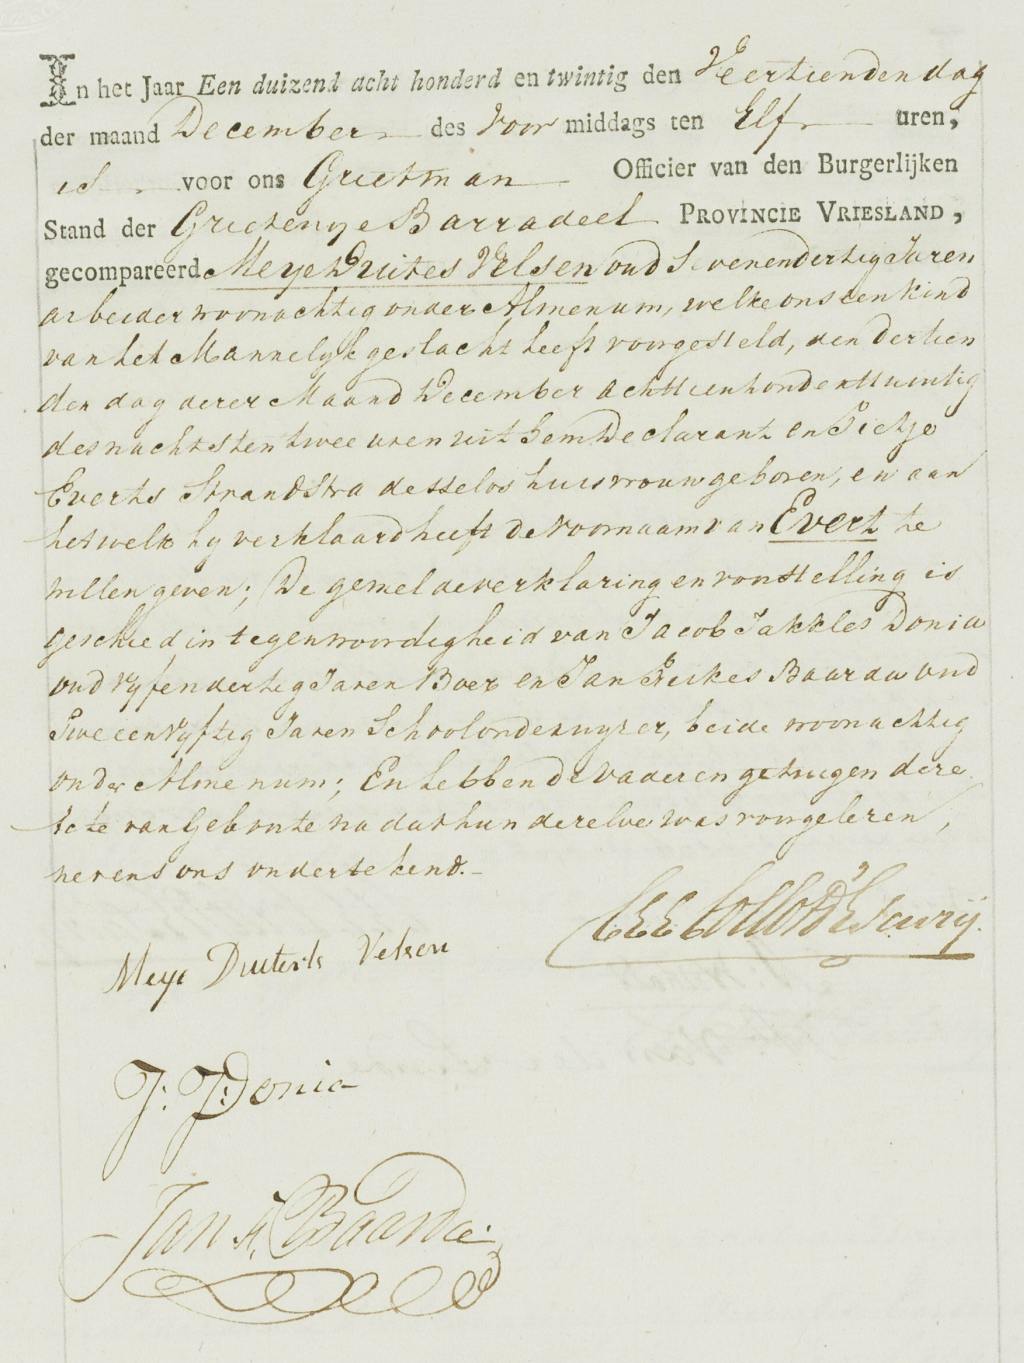 In het Jaar Een duizend acht honderd en twintig den Veertienden dag
der maand December des Voor middags ten Elf uren,
is voor ons Grietman Officier van den Burgerlijken
Stand der Grietenye Barradeel PROVINCIE VRIESLAND,
gecompareerd Meye Duites Velsen oud Sevenendertig Jaren
arbeider woonachtig onder Almenum, welke ons een kind
van het Mannelyk geslacht heeft voorgesteld, den dertien
den dag deser Maand December achttienhonderttwintig
des nachts ten twee uren uit hem Declarant en Pietje
Everts Strandstra desselvs huisvrouw geboren, en aan
hetwelk hy verklaard heeft de voornaam van Evert te
willen geven; De gemelde verklaring en voorstelling is
geschied in tegenwoordigheid van Jacob Jakkles Donia
oud vyfendertig Jaren Boer en Jan Baarda oud
Tweeenvyftig Jaren Schoolonderwyser, beide woonachtig
onder Almenum; En hebben de Vader en getuigen dese
acte van Geboorte na dat hun deselve was voorgelesen,
nevens ons ondertekend.-
Meye Duiterts Velsen
J: J: Donia
Jan Baarda